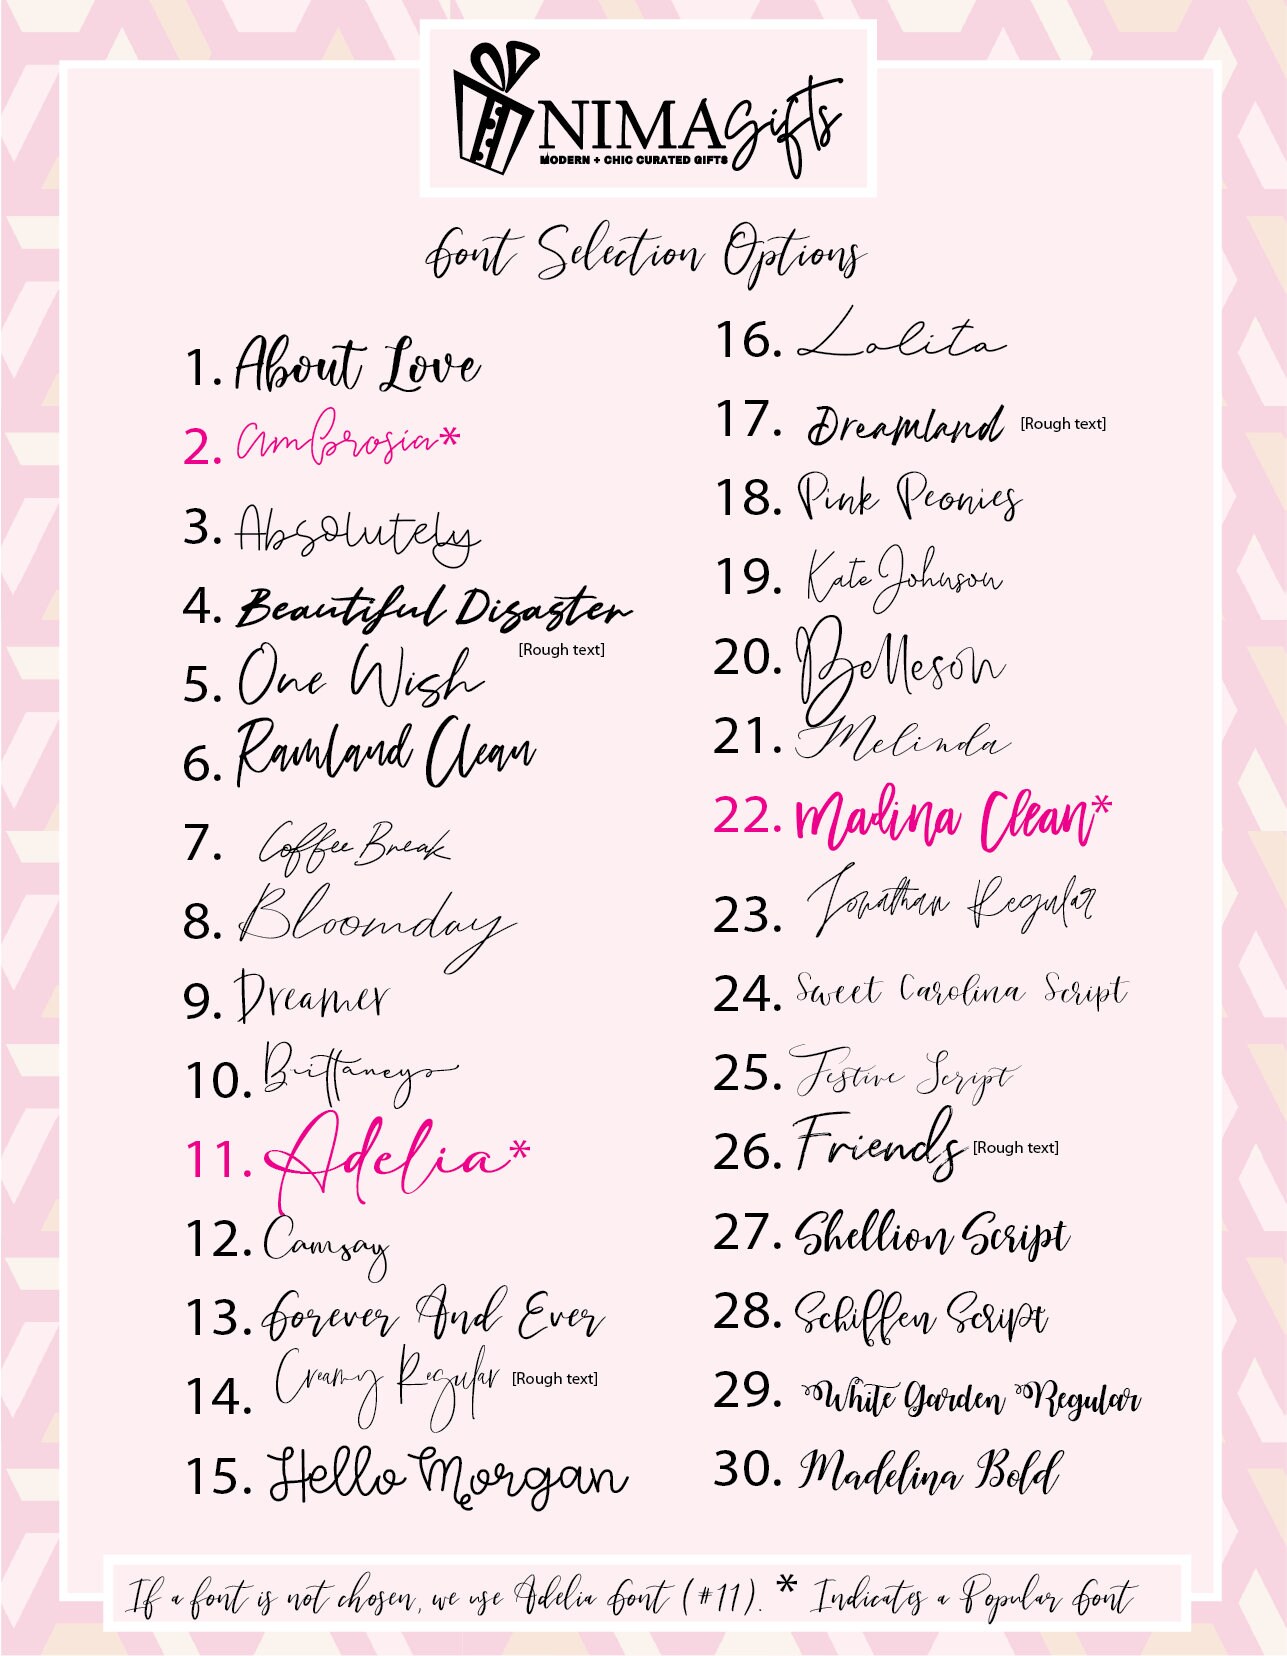 NIMAGifts
MODERN + CHIC CURATED GIFTS
Font Selection Options
1. About Love
2. Ambrosia*
3. Absolutely
4. Beautiful Disaster
[Rough text]
5. One Wish
6. Ramland Clean
7. Coffee Break
8. Bloomday
9. Dreamer
10. Brittaney
11. Adelia*
12. Camsay
13. Forever And Ever
14. Creamy Regular [Rough text]
15. Hello Morgan
16. Lolita
17. Dreamland [Rough text]
18. Pink Peonies
19. Kate Johnson
20. Belleson
21. Melinda
22. Madina Clean*
23. Jonathan Regular
24. Sweet Carolina Script
25. Festive Script
26. Friends [Rough text]
27. Shellion Script
28. Schiffen Script
29. White Garden Regular
30. Madelina Bold
If a font is not chosen, we use Adelia Font (#11). * Indicates a Popular Font